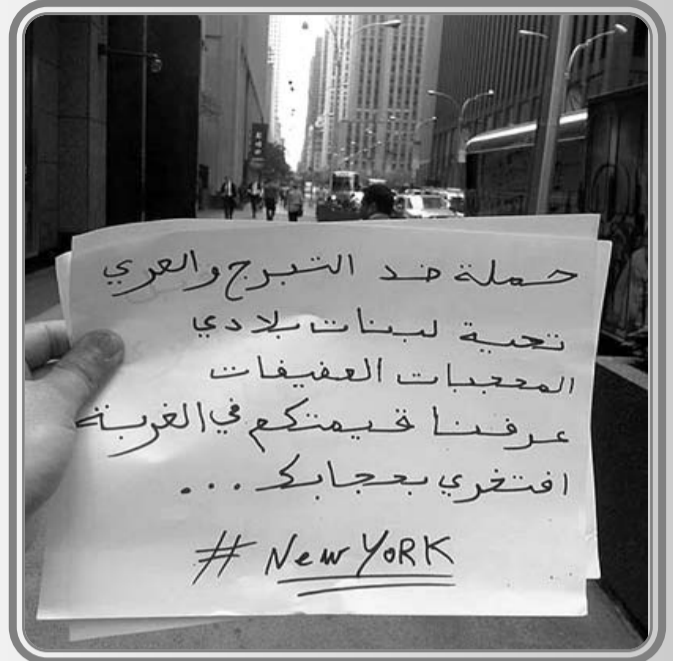 حملة ضد التبرج والعري
تحية لبنات بلادي
المحجبات العفيفات
عرفنا قيمتكم في الغربة
افتخري بحجابك ...
# New YoRK